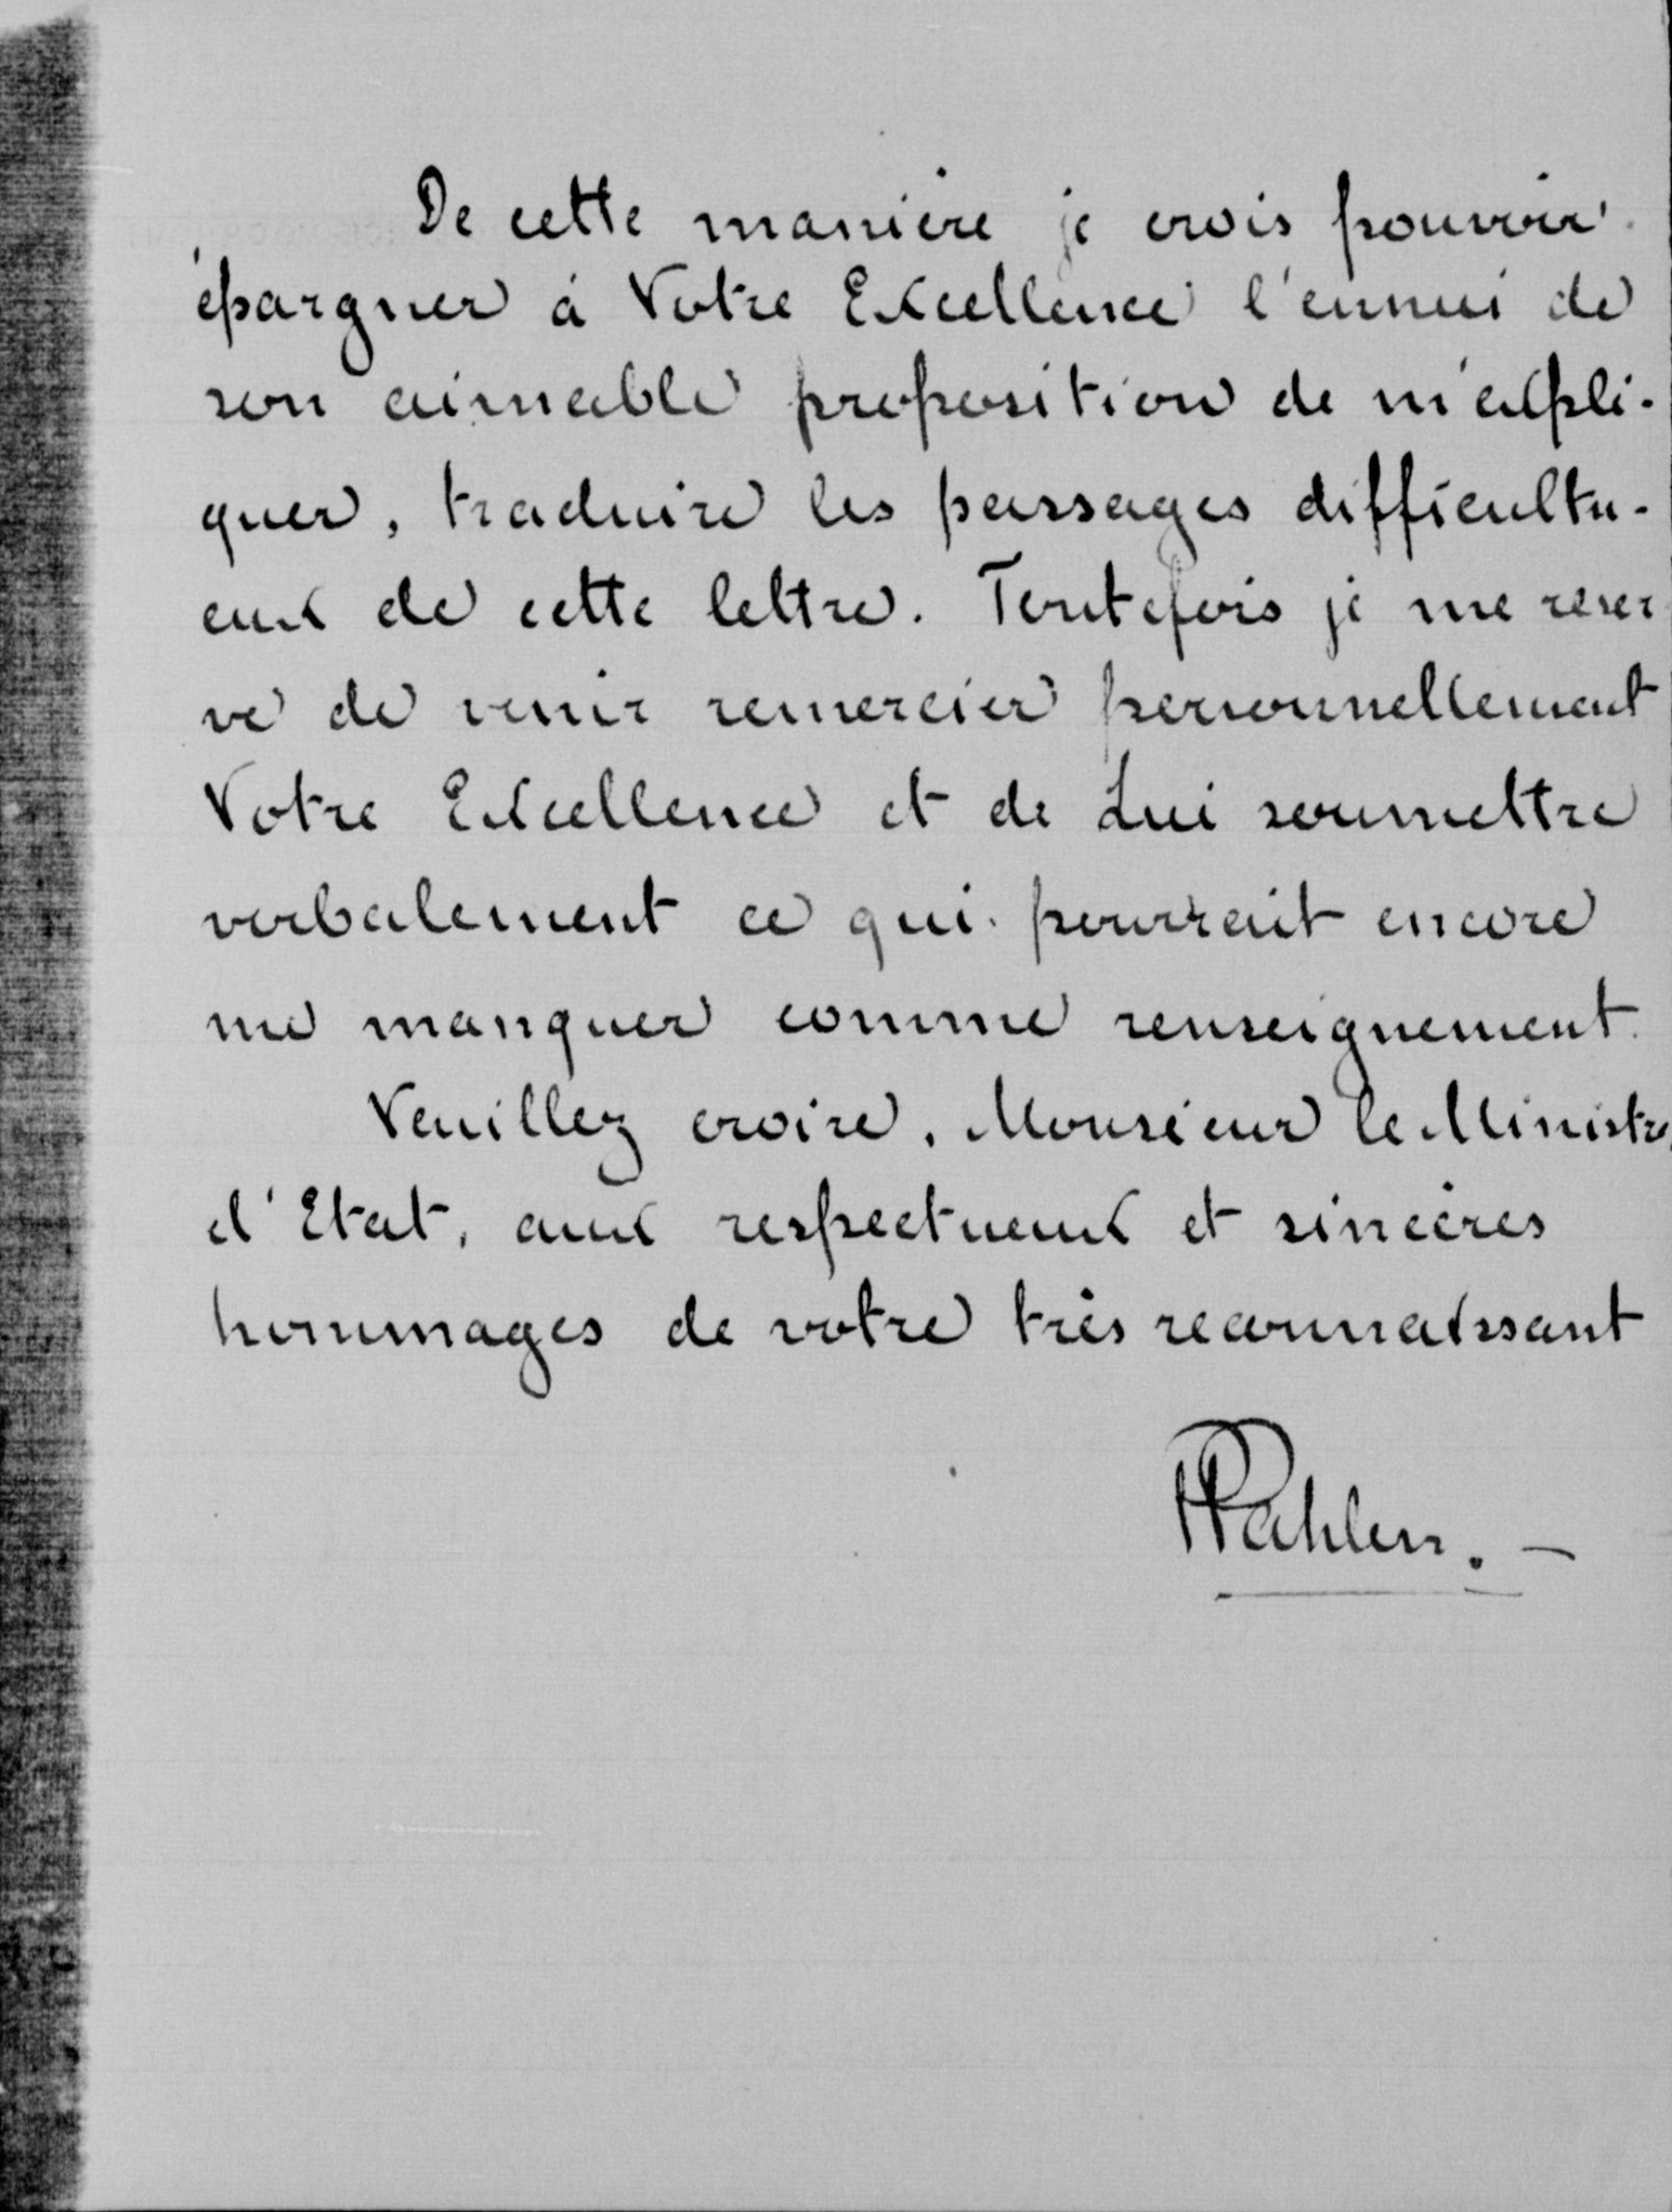 De cette manière je crois pouvoir
épargner à Votre Excellence l'ennui de
son aimable proposition de m'expli-
quer, traduire les passages difficultu-
eux de cette lettre. Toutefois je me reser
ve de venir remercier personnellement
Votre Excellence et de Lui soumettre
verbalement ce qui pourrait encore
me manquer comme renseignement.
Veuillez croire, Monsieur le Ministre
d'Etat, aux respectueux et sincères
hommages de votre très reconnaissant
Pahlen. —